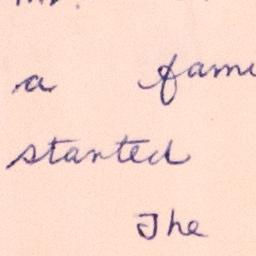 a fami
started
The